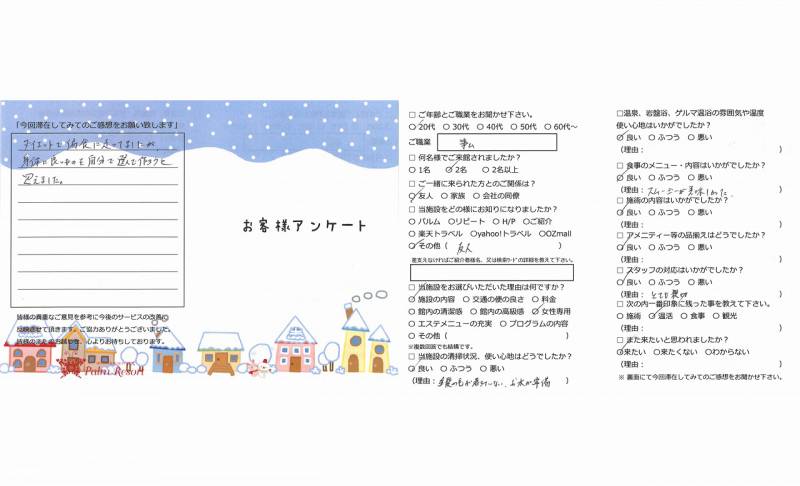 「今回滞在してみてのご感想をお願い致します」
ダイエットで偏食に走ってましたが、
身体に良いものを自分で選んで作ろうと
思えました。
お客様アンケート
皆様の貴重なご意見を参考に今後のサービスの改善に
反映させて頂きます。ご協力ありがとうございました。
皆様のまたのお越しを、心よりお待ちしております。
Palm Resort
□ ご年齢とご職業をお聞かせ下さい。
○20代 ○30代 ○40代 ○50代 ○60代~
ご職業 事ム
□ 何名様でご来館されましたか?
○1名 ○2名 ○2名以上
□ ご一緒に来られた方とのご関係は?
○友人 ○家族 ○会社の同僚
□ 当施設をどの様にお知りになりましたか?
○パルム ○リピート ○H/P ○ご紹介
○楽天トラベル ○yahoo!トラベル ○OZmall
○その他( 友人 )
差支えなければご紹介者様名、又は検索ワードの詳細を教えて下さい。
□ 当施設をお選びいただいた理由は何ですか?
○施設の内容 ○交通の便の良さ ○料金
○館内の清潔感 ○館内の高級感 ○女性専用
○エステメニューの充実 ○プログラムの内容
○その他( )
※複数回答でも結構です。
□ 当施設の清掃状況、使い心地はどうでしたか?
○良い ○ふつう ○悪い
(理由: 髪の毛が落ちていない、お水が常備 )
□温泉、岩盤浴、ゲルマ温浴の雰囲気や温度
使い心地はいかがでしたか?
○良い ○ふつう ○悪い
(理由: )
□ 食事のメニュー・内容はいかがでしたか?
○良い ○ふつう ○悪い
(理由: スムージーが美味しかった )
□ 施術の内容はいかがでしたか?
○良い ○ふつう ○悪い
(理由: )
□ アメニティー等の品揃えはどうでしたか?
○良い ○ふつう ○悪い
(理由: )
□ スタッフの対応はいかがでしたか?
○良い ○ふつう ○悪い
(理由: とても親切 )
□ 次の内一番印象に残った事を教えて下さい。
○施術 ○温活 ○食事 ○観光
(理由: )
□ また来たいと思われましたか?
○来たい ○来たくない ○わからない
(理由: )
※ 裏面にて今回滞在してみてのご感想をお聞かせ下さい。